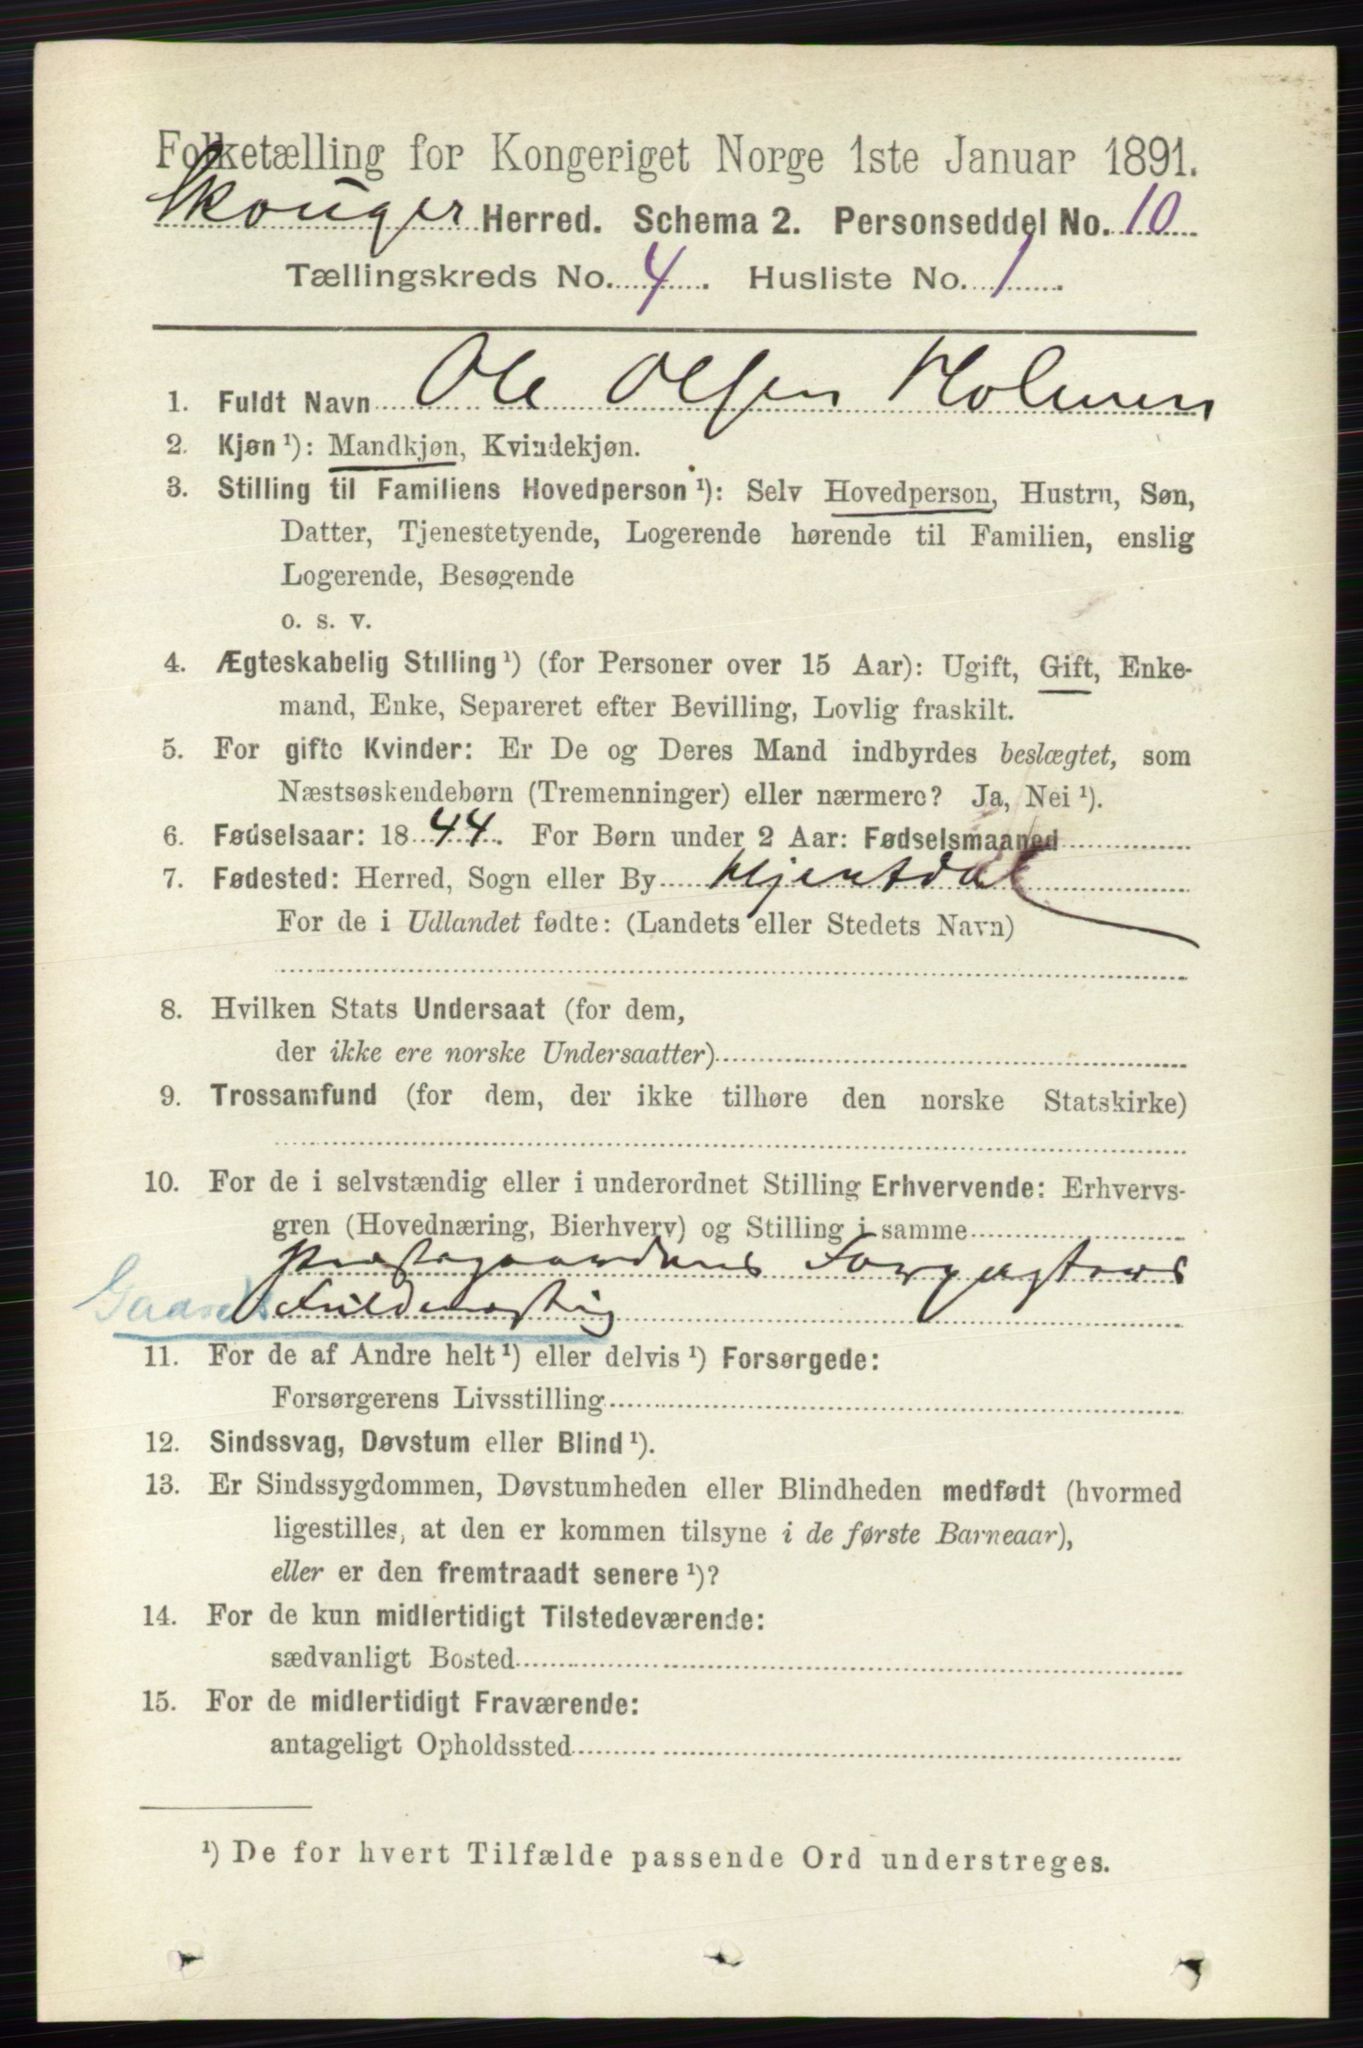 Folketælling for Kongeriget Norge 1ste Januar 1891.
Skouger Herred. Schema 2. Personseddel No. 10
Tællingskreds No. 4. Husliste No. 1.
1. Fuldt Navn Ole Olsen Holmen
2. Kjøn ¹): Mandkjøn, Kvindekjøn.
3. Stilling til Familiens Hovedperson ¹): Selv Hovedperson, Hustru, Søn,
Datter, Tjenestetyende, Logerende hørende til Familien, enslig
Logerende, Besøgende
o. s. v.
4. Ægteskabelig Stilling ¹) (for Personer over 15 Aar): Ugift, Gift, Enke-
mand, Enke, Separeret efter Bevilling, Lovlig fraskilt.
5. For gifte Kvinder: Er De og Deres Mand indbyrdes beslægtet, som
Næstsøskendebørn (Tremenninger) eller nærmere? Ja, Nei ¹).
6. Fødselsaar: 1844. For Børn under 2 Aar: Fødselsmaaned
7. Fødested: Herred, Sogn eller By Hjertdal
For de i Udlandet fødte: (Landets eller Stedets Navn)
8. Hvilken Stats Undersaat (for dem,
der ikke ere norske Undersaatter)
9. Trossamfund (for dem, der ikke tilhøre den norske Statskirke)
10. For de i selvstændig eller i underordnet Stilling Erhvervende: Erhvervs-
gren (Hovednæring, Bierhverv) og Stilling i samme
Præstegaardens Forpagters
Gaards Fuldmægtig
11. For de af Andre helt ¹) eller delvis ¹) Forsørgede:
Forsørgerens Livsstilling
12. Sindssvag, Døvstum eller Blind ¹).
13. Er Sindssygdommen, Døvstumheden eller Blindheden medfødt (hvormed
ligestilles, at den er kommen tilsyne i de første Barneaar),
eller er den fremtraadt senere ¹)?
14. For de kun midlertidigt Tilstedeværende:
sædvanligt Bosted
15. For de midlertidigt Fraværende:
antageligt Opholdssted
¹) De for hvert Tilfælde passende Ord understreges.